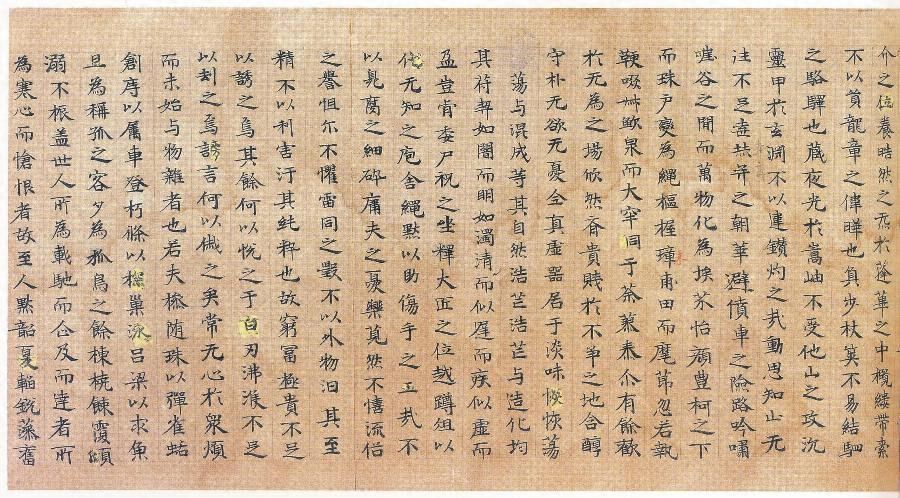 介之位養晧然之氣於蓬蓽之中襤縷帶索
不以貿龍章之偉曄也負步杖筴不易結駟
之駱驛也蔵夜光於嵩岫不受他山之攻沉
靈甲於玄淵不以違鑽灼之烖動思知止无
往不足棄赫弈之朝華避僨車之險路吟嘯
崖谷之間而萬物化為埃芥怡顏豊柯之下
而珠戶變為繩樞握璋甫田而麾莭忽若執
鞭啜荈飲泉而大牢同于茶蓼泰尒有餘歡
於无為之場欣然斉貴賤於不爭之地含醇
守朴无欲无憂全真虛器居于淡味恢恢蕩
蕩与渾成等其自然浩芒浩芒与造化均
其符契如闇而明如濁清而似遅而疾似虛而
盈豈肯委尸祝之坐釋大匠之位越罇俎以
代无知之庖舎繩墨以助傷手之工烖不
以臭腐之細碎庸夫之憂樂藐然不憘流俗
之譽怛尒不懼雷同之毀不以外物汩其至
精不以利害汙其純粹也故窮冨極貴不足
以誘之焉其餘何以悅之于白刃沸濩不足
以刦之焉謗言何以慽之矣常无心於衆煩
而未始与物雜者也若夫摻随珠以彈雀䑛
秦痔以属車登朽緜以探巢泳呂梁以求魚
旦為稱孤之客夕為狐鳥之餘棟橈餗覆傾
溺不振盖世人所為載馳而企及而達者所
為寒心而愴恨者故至人黙韶夏韜銳藻奮